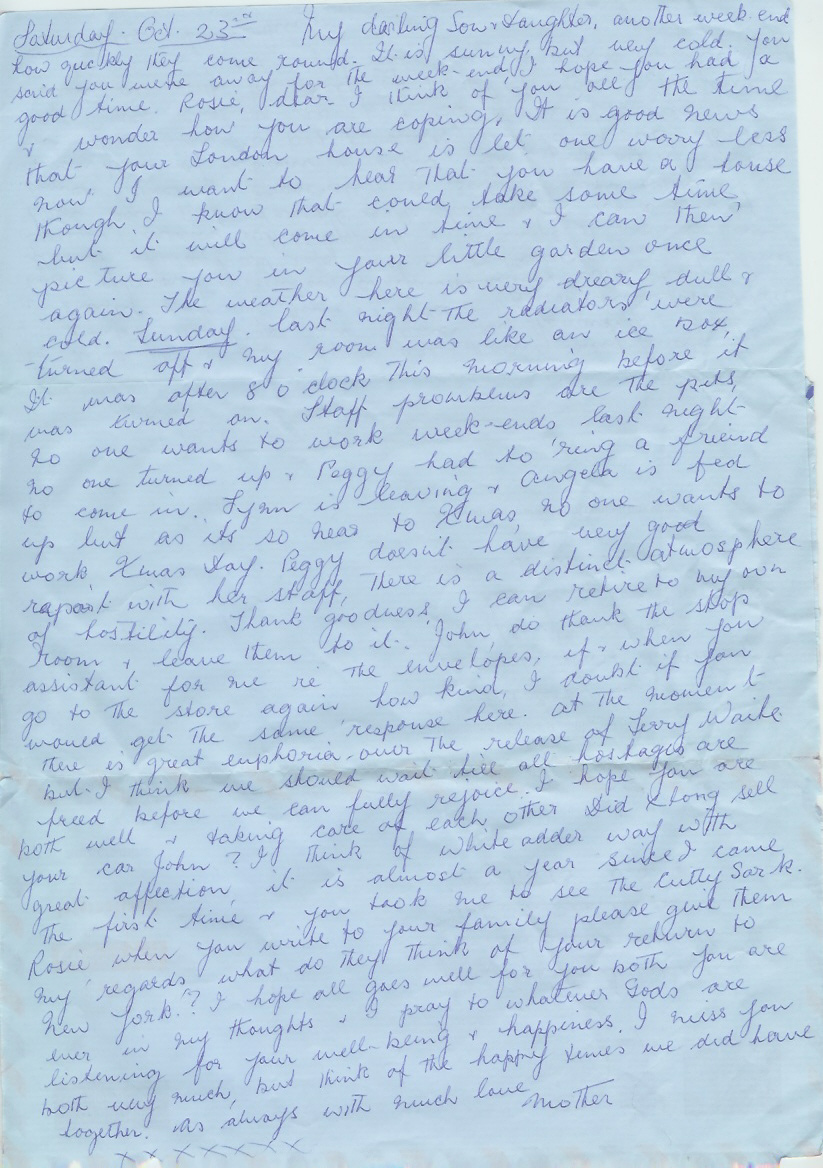 Saturday. Oct. 23rd My darling Son & daughter, another week-end
how quickly they come round. It is sunny but very cold. You
said you were away for the week-end, I hope you had a
good time. Rosie, dear I think of you all the time
& wonder how you are coping, It is good news
that your London house is let one worry less
now I want to hear that you have a house
though. I know that could take some time
but it will come in time & I can then
picture you in your little garden once
again. The weather here is very dreary dull &
cold. Sunday. last night the radiators were
turned off & my room was like an ice box,
It was after 8 o clock this morning before it
was turned on. Staff promblems are the pits,
no one wants to work week-ends last night
no one turned up & Peggy had to ring a friend
to come in. Lynn is leaving & Angela is fed
up but as its so near to Xmas, no one wants to
work Xmas day. Peggy doesn't have very good
raport with her staff, there is a distinct atmosphere
of hostility. Thank goodness I can retire to my own
room & leave them to it. John, do thank the shop
assistant for me re the envelopes, if & when you
go to the store again how kind, I doubt if you
would get the same response here. at the moment
there is great euphoria over the release of Terry Waite
but I think we should wait till all hostages are
freed before we can fully rejoice. I hope you are
both well & taking care of each other Did Chong sell
your car John? I think of whiteadder way with
great affection, it is almost a year since I came
the first time & you took me to see the Cutty Sark.
Rosie when you write to your family please give them
my regards what do they think of your return to
New York.? I hope all goes well for you both you are
ever in my thoughts & I pray to whatever Gods are
listening for your well-being & happiness. I miss you
both very much, but think of the happy times we did have
together. As always with much love Mother
x x x x x x x